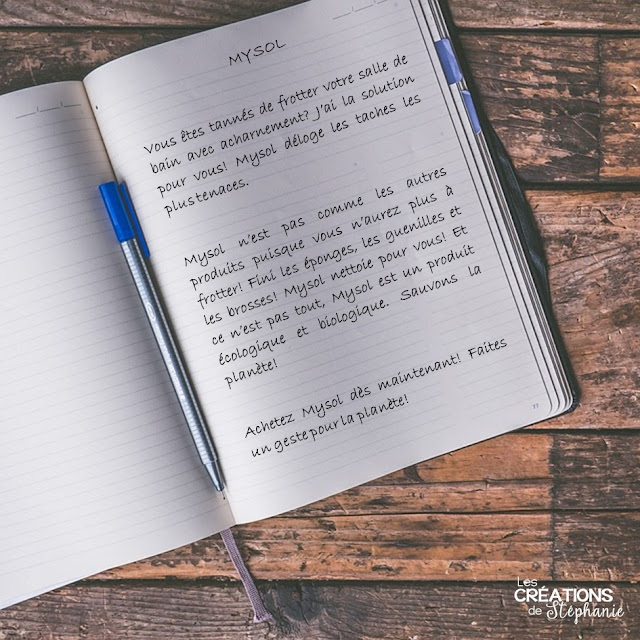 MYSOL
Vous êtes tannés de frotter votre salle de
bain avec acharnement? J'ai la solution
pour vous! Mysol déloge les taches les
plus tenaces.
Mysol n'est pas comme les autres
produits puisque vous n'aurez plus à
frotter! Fini les éponges, les guenilles et
les brosses! Mysol nettoie pour vous! Et
ce n'est pas tout, Mysol est un produit
écologique et biologique. Sauvons la
planète!
Achetez Mysol dès maintenant! Faites
un geste pour la planète!
77
Les
CRÉATIONS
de Stéphanie